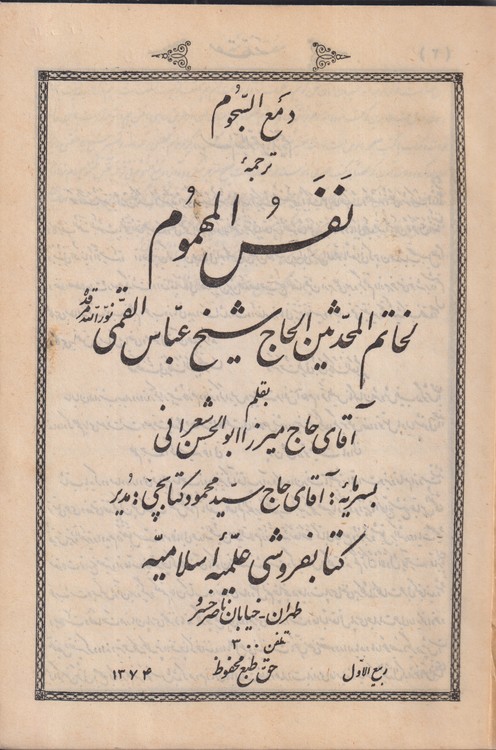 دمع السّجوم
ترجمهٔ
نَفَسُ المهمومُ
لخاتم المحدثین الحاج شیخ عبّاس القمّی نوّر اللّه مرقده
بقلم
آقای حاج میرزا ابوالحسن شعرانی
بسرمایهٔ: آقای حاج سیّد محمود کتابچی: مدیر
کتابفروشی علمیّهٔ اسلامیّه
طهران - خیابان ناصر خسرو
تلفن ۳۰۰
ربیع الاوّل حق طبع محفوظ ۱۳۷۴